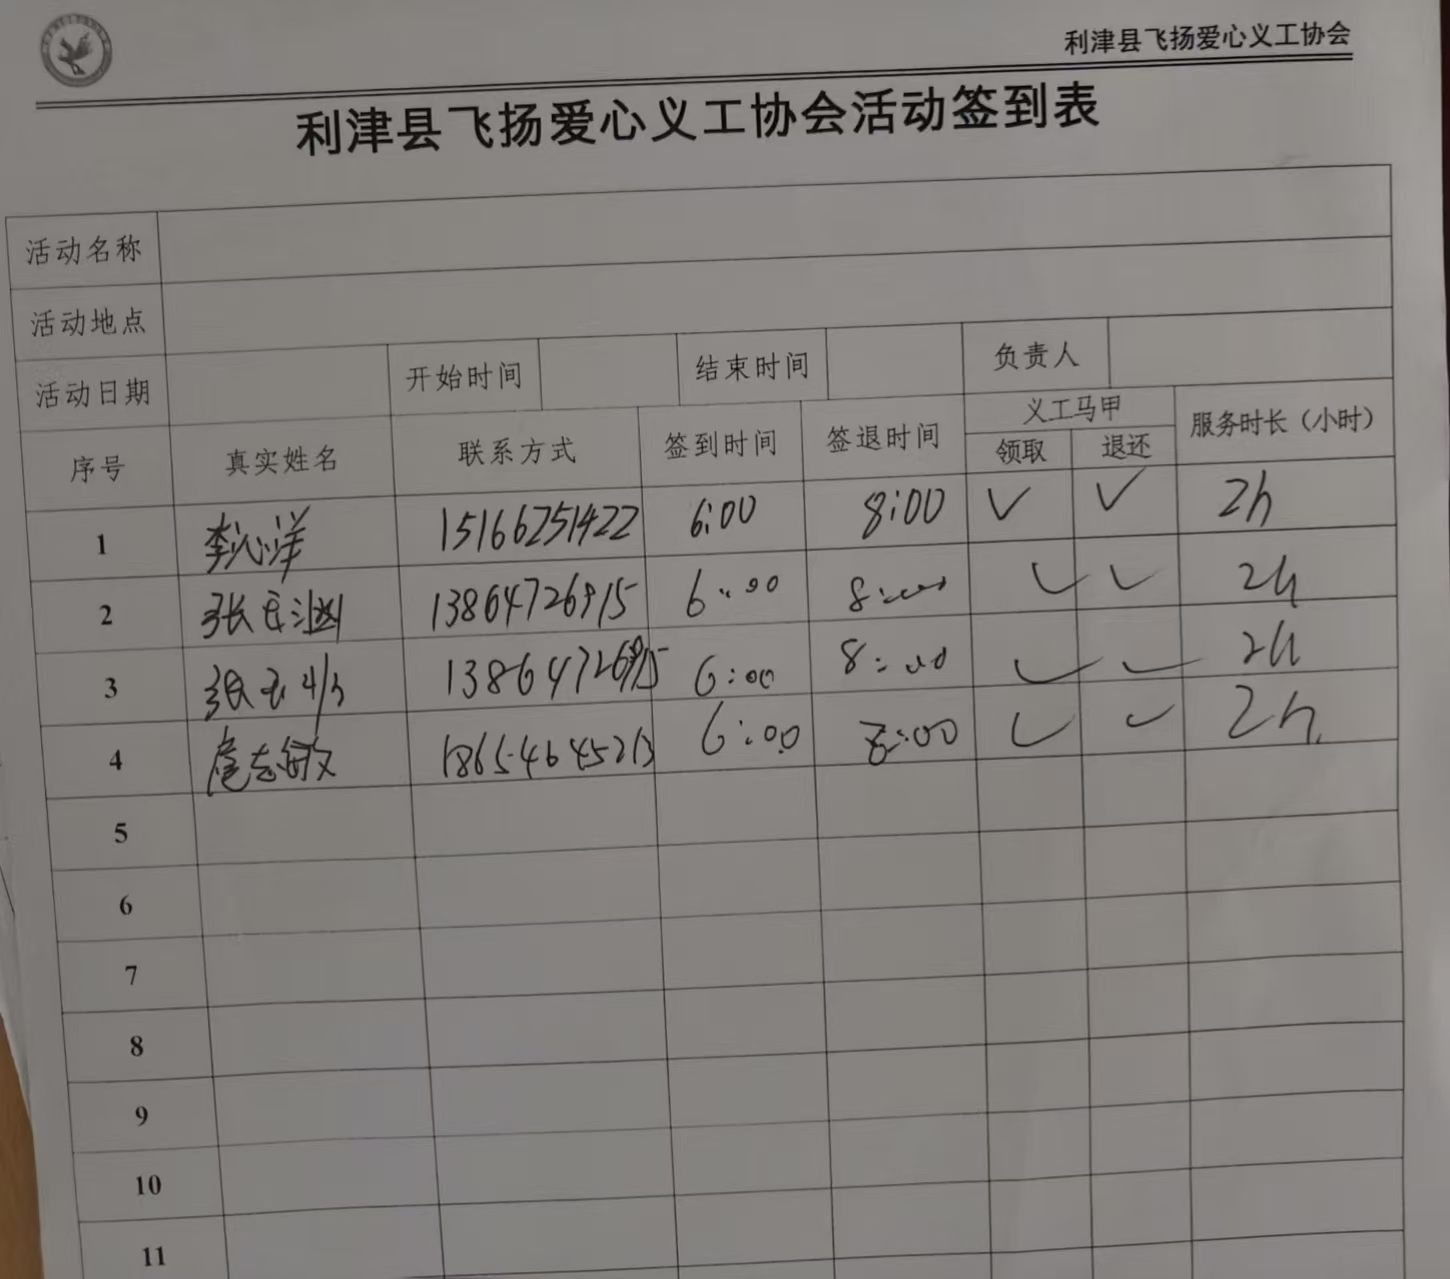 利津县飞扬爱心义工协会
利津县飞扬爱心义工协会活动签到表
活动名称
活动地点
活动日期 开始时间 结束时间 负责人
序号 真实姓名 联系方式 签到时间 签退时间 义工马甲 服务时长（小时）
领取 退还
1 李沁洋 15166251422 6:00 8:00 ✓ ✓ 2h
2 张 13864726915 6:00 8:00 ✓ ✓ 2h
3 张玉 13864726915 6:00 8:00 ✓ ✓ 2h
4 扈志敏 18654645213 6:00 8:00 ✓ ✓ 2h
5
6
7
8
9
10
11